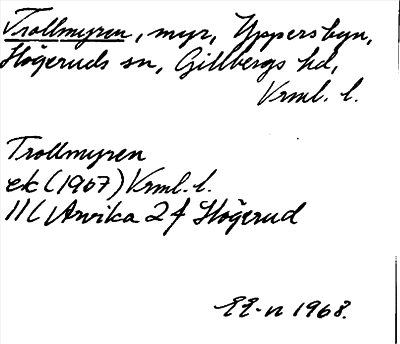 Trollmyren, myr, Yppersbyn,
Högeruds sn, Gillbergs hd,
Vrml. l.
Trollmyren
ek (1967) Vrml. l.
11C Arvika 2 f Högerud
1968.